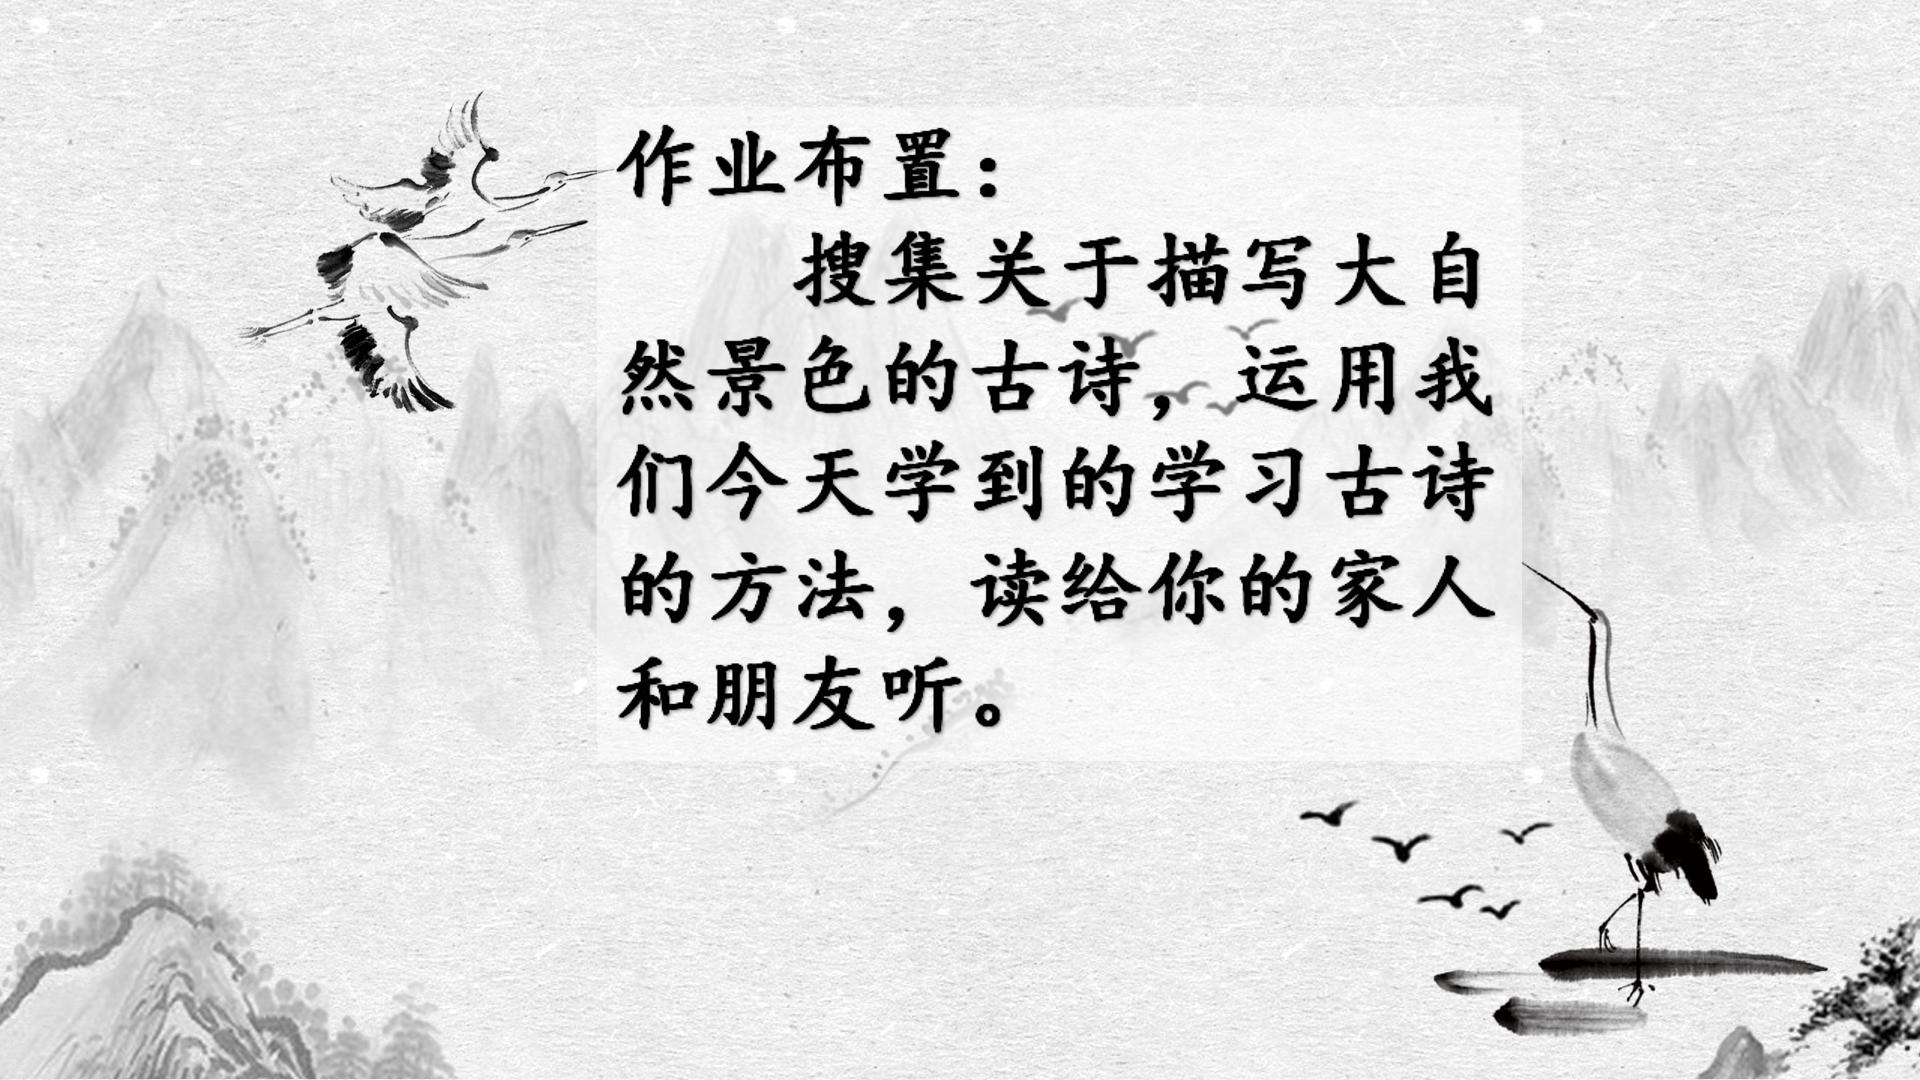 作业布置：
搜集关于描写大自
然景色的古诗，运用我
们今天学到的学习古诗
的方法，读给你的家人
和朋友听。